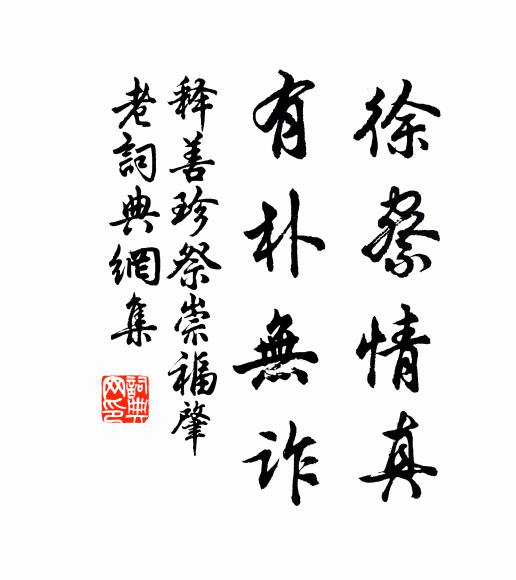 徐察情真
有朴無詐
释善珍祭崇福肇
老詞典網集
詞典网印